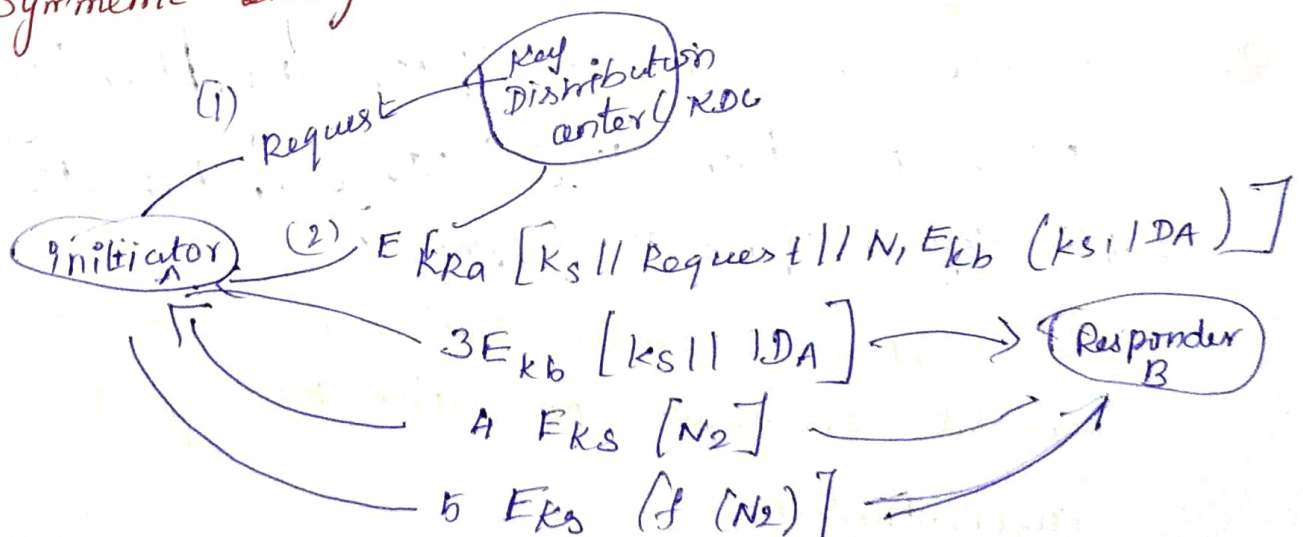 Symmetric
Key
Distribution
center ( KDC
(1)
Request
Initiator
A
(2) E KRa [Ks || Request || N, Ekb (ks, IDA)]
3 Ekb [ks || IDA]
Responder
B
4 EKS [N2]
5 EKs (f (N2)]